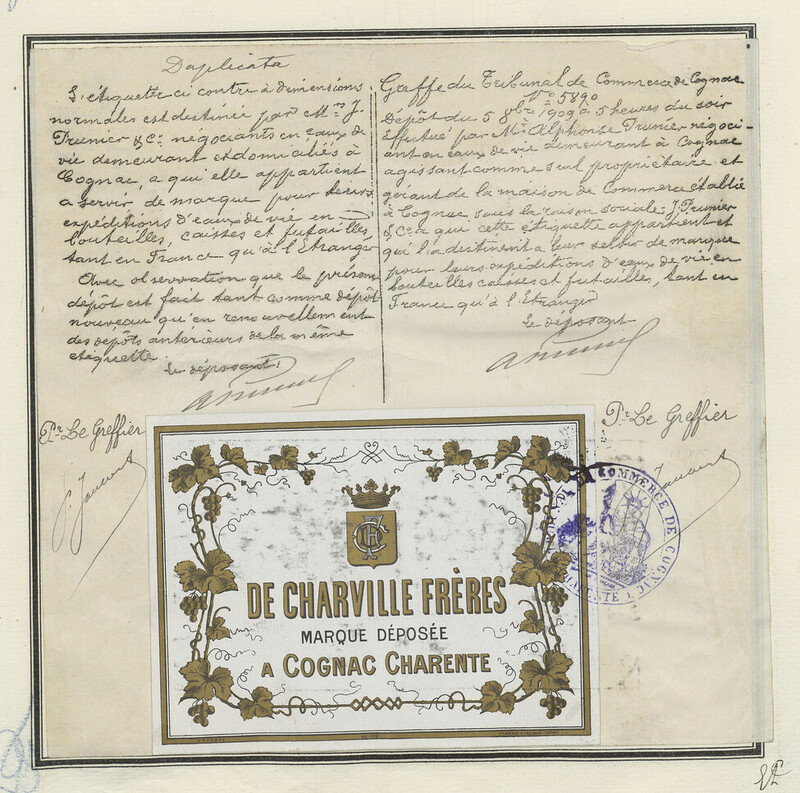 Duplicata
L'étiquette ci contre à dimensions
normales est destinée par Mrs J.
Prunier & Co négociants en eaux de
vie demeurant et domiciliés à
Cognac, a qui elle appartient
a servir de marque pour leurs
expéditions d'eaux de vie en
bouteilles, caisses et futailles,
tant en France qu'à l'Etranger
Avec observation que le présent
dépôt est fait tant comme dépôt
nouveau qu'en renouvellement
des dépôts antérieurs de la même
etiquette.
Le déposant:
Pr Le Greffier
Greffe du Tribunal de Commerce de Cognac
No 5890
Dépôt du 5 8bre 1909 à 5 heures du soir
Effectué par Mr Alphonse Prunier négoci-
ant en eaux de vie demeurant à Cognac
agissant comme seul propriétaire et
gérant de la maison de Commerce établie
à Cognac sous la raison sociale J. Prunier
& Co a qui cette étiquette appartient et
qui l'a destinent a leur servir de marque
pour leurs expéditions d'eaux de vie, en
bouteilles caisses et futailles, tant en
France qu'à l'Etranger
Le déposant
Pr Le Greffier
DE CHARVILLE FRÈRES
MARQUE DÉPOSÉE
A COGNAC CHARENTE
COMMERCE DE COGNAC